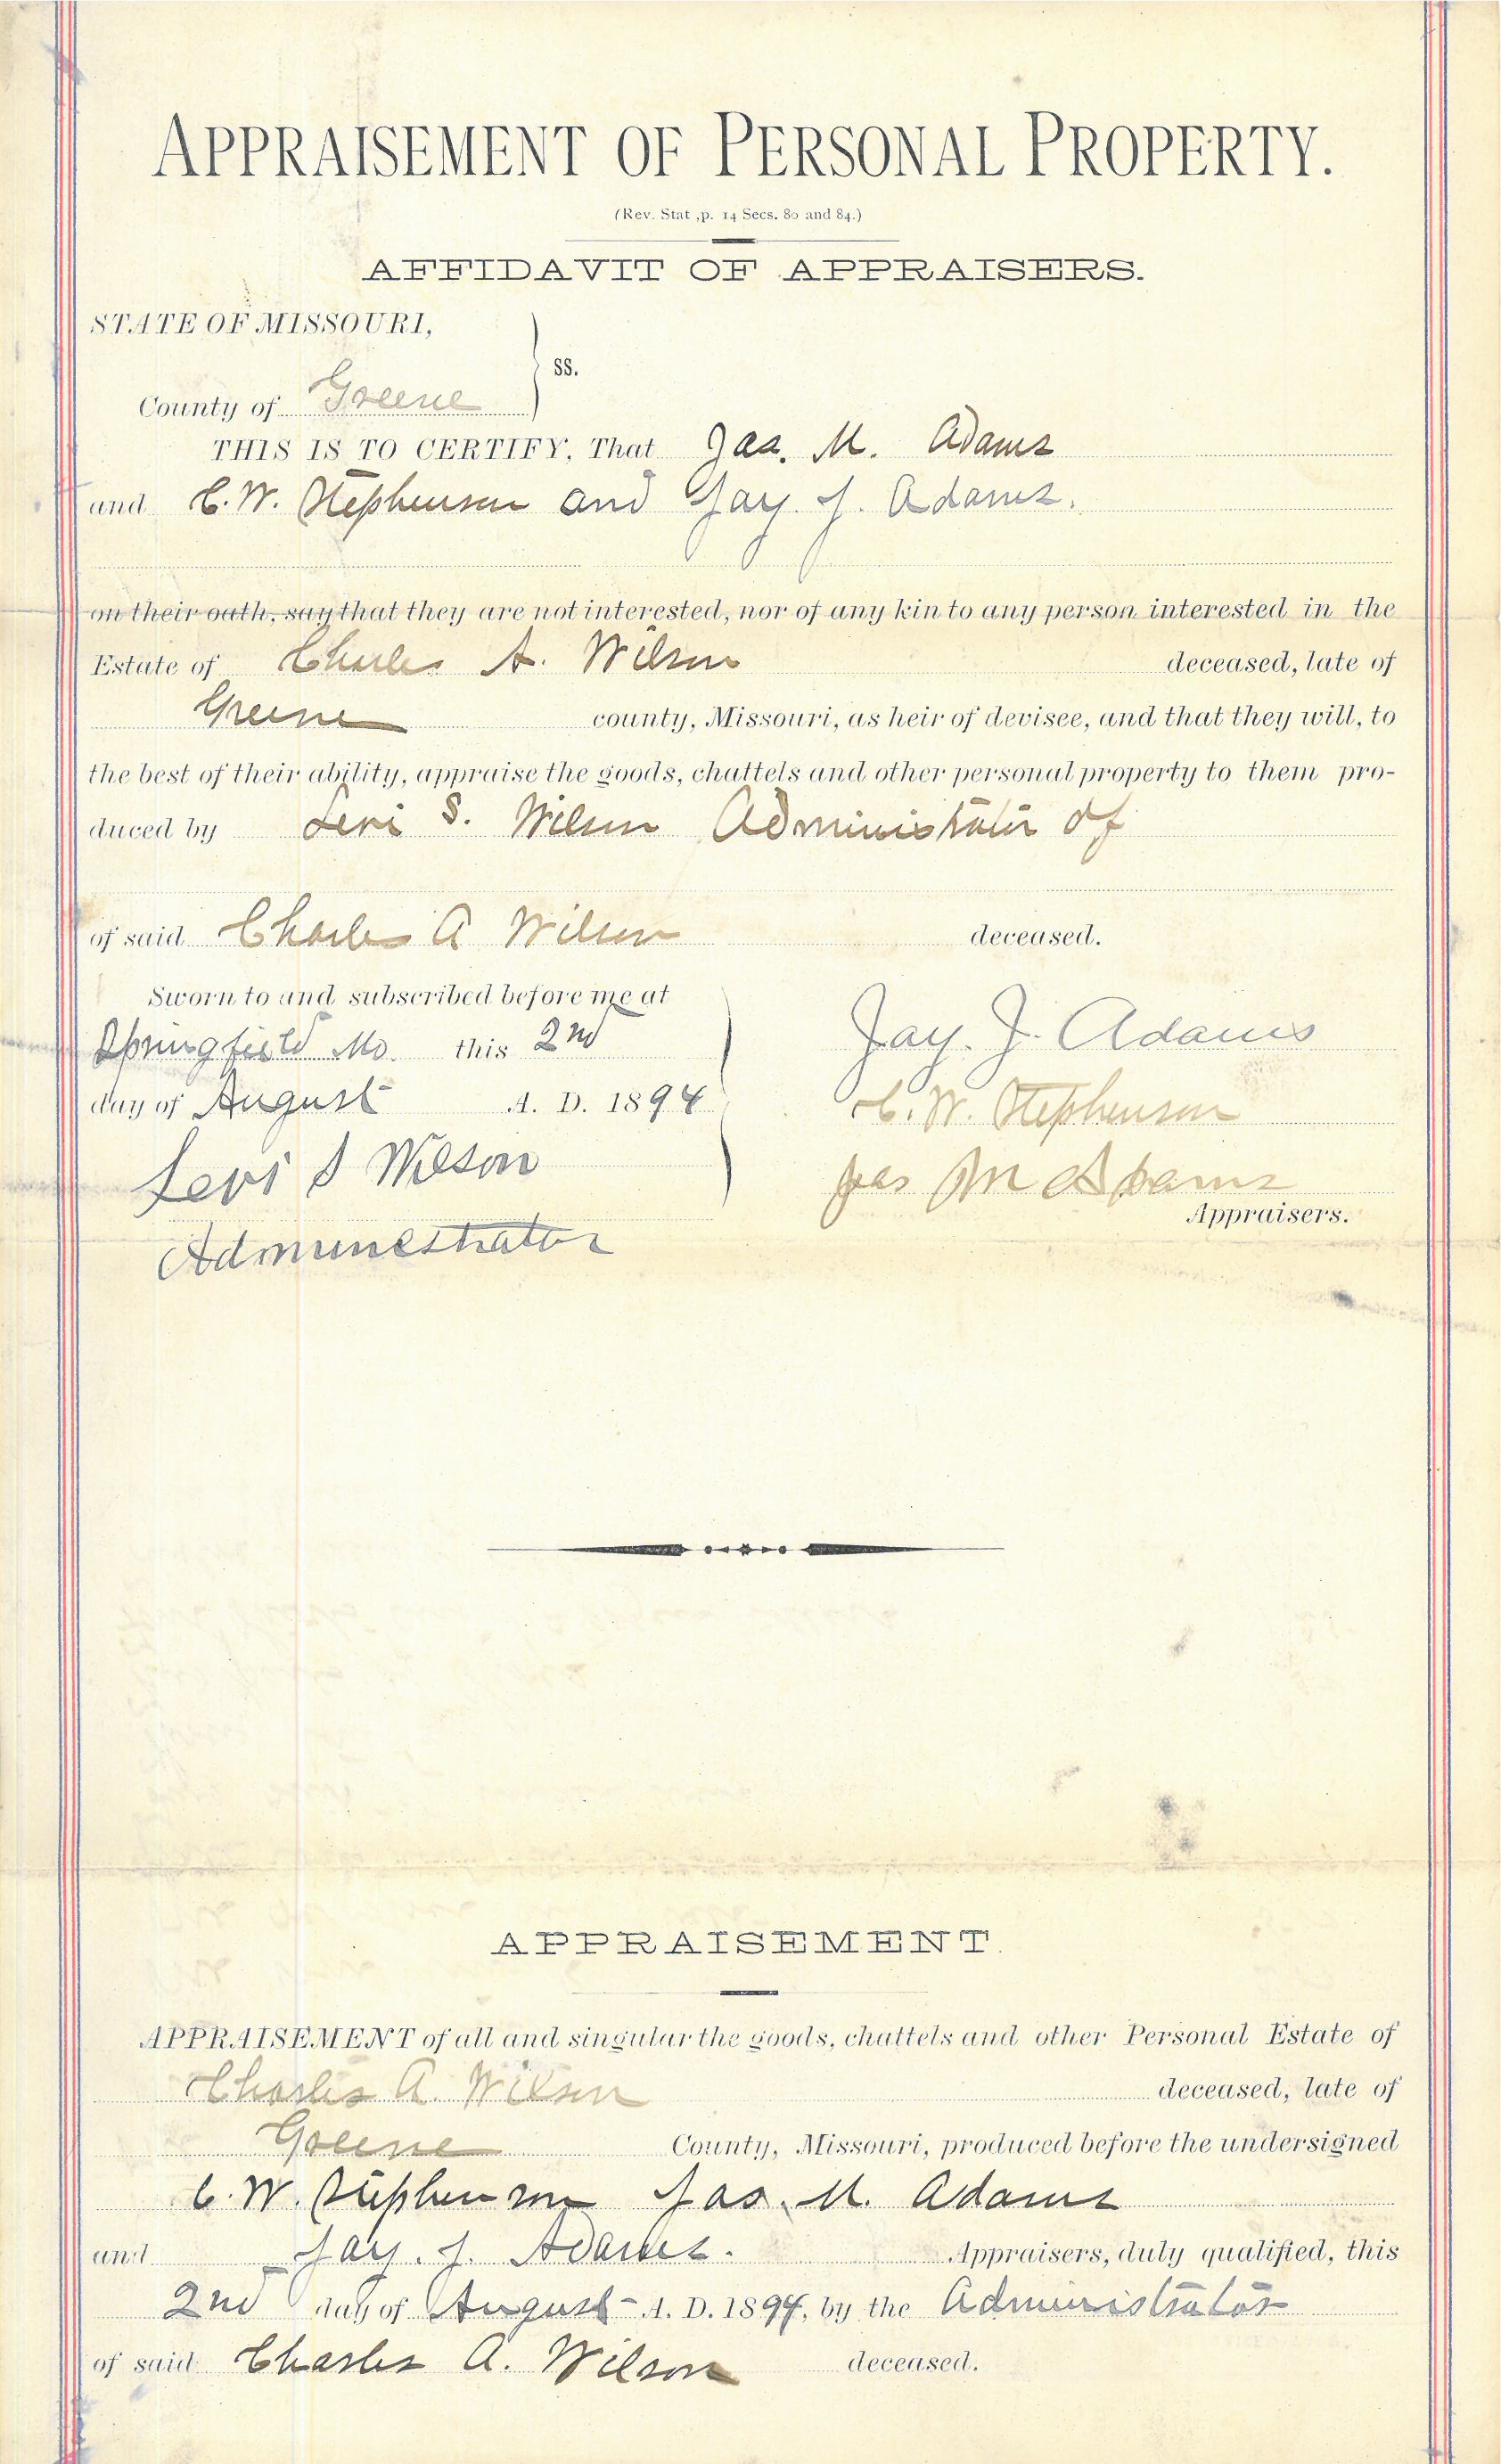 APPRAISEMENT OF PERSONAL PROPERTY.
(Rev. Stat ,p. 14 Secs. 80 and 84.)
AFFIDAVIT OF APPRAISERS.
STATE OF MISSOURI,
ss.
County of Greene
THIS IS TO CERTIFY, That Jas. M. Adams
and C. W. Stephenson and Jay. J. Adams.
on their oath, say that they are not interested, nor of any kin to any person interested in the
Estate of Charles A. Wilson deceased, late of
Greene county, Missouri, as heir of devisee, and that they will, to
the best of their ability, appraise the goods, chattels and other personal property to them pro-
duced by Levi S. Wilson Administrator of
of said Charles A Wilson deceased.
Sworn to and subscribed before me at
Springfield Mo. this 2nd
day of August A. D. 1894
Levi S Wilson
Admunestrator
Jay. J. Adams
C. W. Stephenson
Jas M Adams
Appraisers.
APPRAISEMENT.
APPRAISEMENT of all and singular the goods, chattels and other Personal Estate of
Charles A. Wilson deceased, late of
Greene County, Missouri, produced before the undersigned
C. W. Stephenson Jas. M. Adams
and Jay. J. Adams. Appraisers, duly qualified, this
2nd day of August A. D. 1894, by the Administrator
of said Charles A. Wilson deceased.